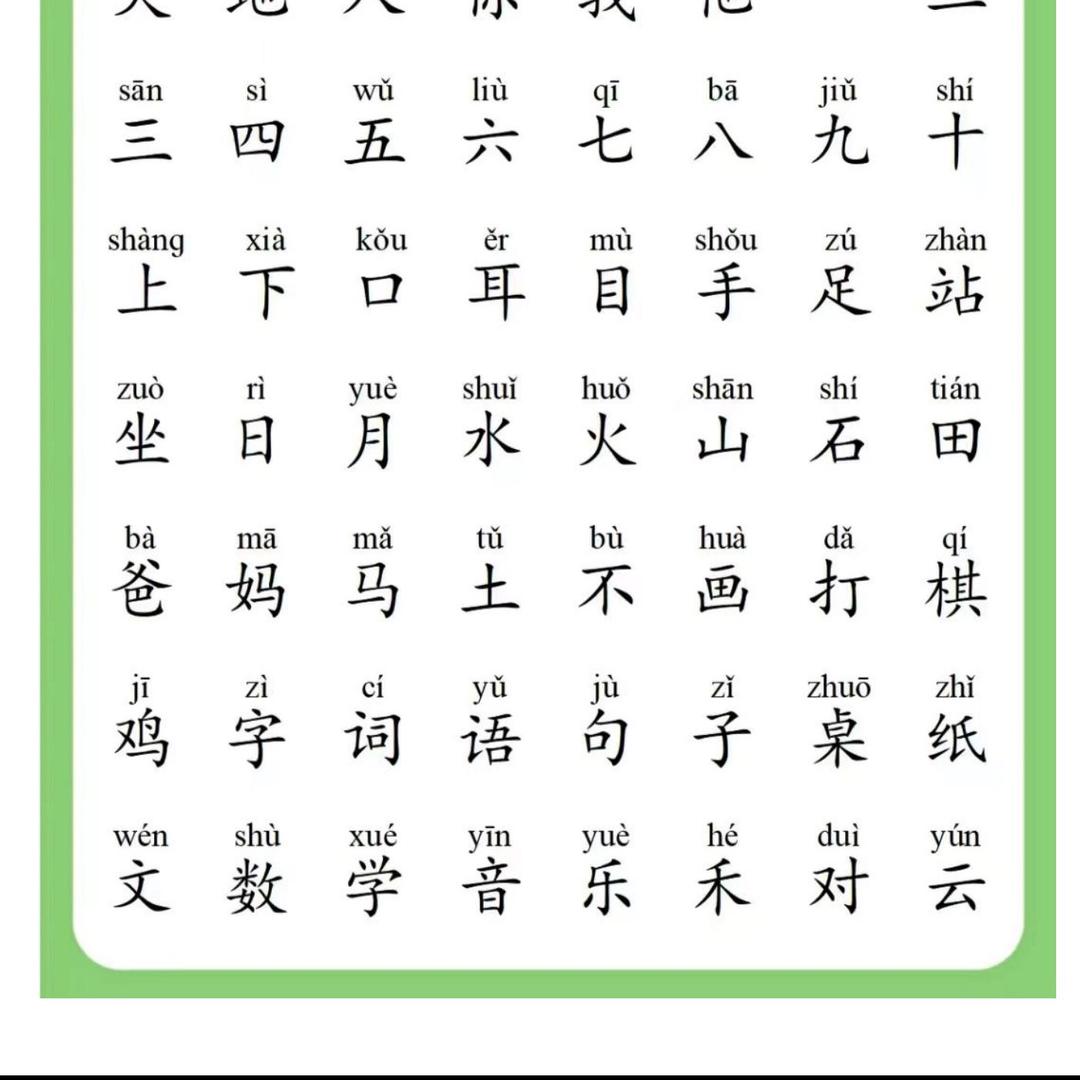 sān sì wǔ liù qī bā jiǔ shí
三 四 五 六 七 八 九 十
shàng xià kǒu ěr mù shǒu zú zhàn
上 下 口 耳 目 手 足 站
zuò rì yuè shuǐ huǒ shān shí tián
坐 日 月 水 火 山 石 田
bà mā mǎ tǔ bù huà dǎ qí
爸 妈 马 土 不 画 打 棋
jī zì cí yǔ jù zǐ zhuō zhǐ
鸡 字 词 语 句 子 桌 纸
wén shù xué yīn yuè hé duì yún
文 数 学 音 乐 禾 对 云